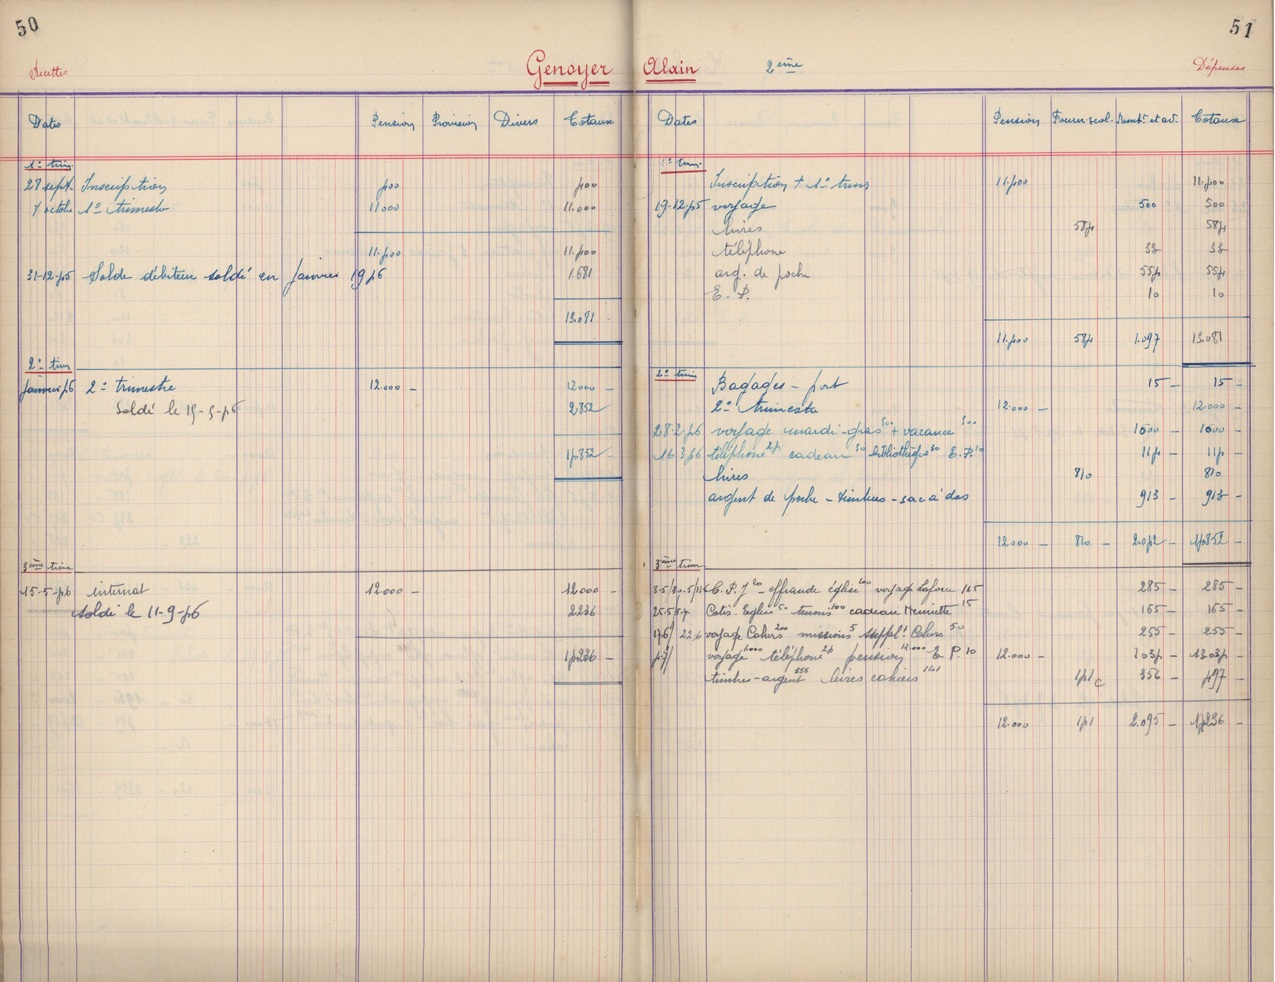 50
Recettes
Genoyer
Dates Pension Provision Divers Totaux
1er trim
28 sept. Inscription 400 400
7 octobre 1er trimestre 11000 11.000
11.400 11.400
31-12-45 Solde débiteur soldé en Janvier 1946 1681
13.081
2e trim
Janvier 46 2e trimestre 12.000 - 12.000 -
Soldé le 2852
14852 -
3ème trim
15-5-46 internat 12.000 - 12.000 -
soldé le 11-9-46 2236
14236 -
51
Alain 2ème
Dépenses
Dates Pension Fourn. scol. Remb. et av. Totaux
1er trim
Inscription + 1er trim 11.400 11.400
19-12-45 voyage 500 500
livres 584 584
téléphone 33 33
arg. de poche 554 554
E. P. 10 10
11.400 584 1.097 13.081
2e trim
Bagages - port 15 - 15 -
2e trimestre 12.000 - 12.000 -
28-2-46 voyage mardi-gras 500 + vacance 500 1000 - 1000 -
16 3 46 téléphone 24 cadeau 50 bibliothèque 30 E. P. 10 114 - 114 -
livres 810 810
argent de poche - timbres - sac à dos 913 - 913 -
12.000 - 810 - 2.042 - 14852 -
3ème trim
C. P. J 20 offrande église 100 voyage 165 285 - 285 -
Cotis. Eglise 50 tennis 100 cadeau Henriette 15 165 - 165 -
voyage Cahors 200 missions 5 Cahors 50 255 - 255 -
voyage 1000 téléphone 24 pension 12.000 E. P. 10 12.000 - 1034 - 13034 -
timbres-argent 356 livres cahiers 141 141 356 - 497 -
12.000 141 2.095 - 14236 -